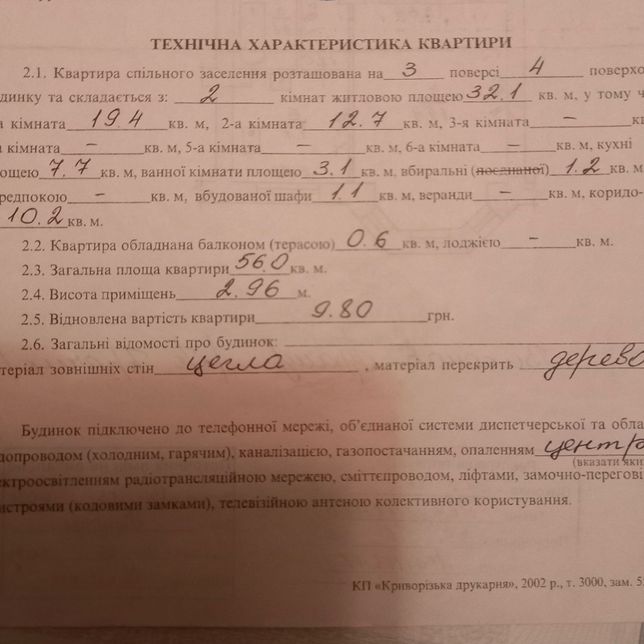 ТЕХНІЧНА ХАРАКТЕРИСТИКА КВАРТИРИ
2.1. Квартира спільного заселення розташована на 3 поверсі 4 поверхо
динку та складається з: 2 кімнат житловою площею 32.1 кв. м, у тому ч
а кімната 19.4 кв. м, 2-а кімната 12.7 кв. м, 3-я кімната – кв
а кімната – кв. м, 5-а кімната – кв. м, 6-а кімната – кв. м, кухні
ощею 7.7 кв. м, ванної кімнати площею 3.1 кв. м, вбиральні (поєднаної) 1.2 кв. м
редпокою – кв. м, вбудованої шафи 1.1 кв. м, веранди – кв. м, коридо-
10.2 кв. м.
2.2. Квартира обладнана балконом (терасою) 0.6 кв. м, лоджією – кв. м.
2.3. Загальна площа квартири 56.0 кв. м.
2.4. Висота приміщень 2.96 м.
2.5. Відновлена вартість квартири 9.80 грн.
2.6. Загальні відомості про будинок:
теріал зовнішніх стін цегла, матеріал перекрить дерево
Будинок підключено до телефонної мережі, об'єднаної системи диспетчерської та обла
допроводом (холодним, гарячим), каналізацією, газопостачанням, опаленням центр
(вказати яки
ектроосвітленням радіотрансляційною мережею, сміттєпроводом, ліфтами, замочно-перегові
истроями (кодовими замками), телевізійною антеною колективного користування.
КП «Криворізька друкарня», 2002 р., т. 3000, зам. 5